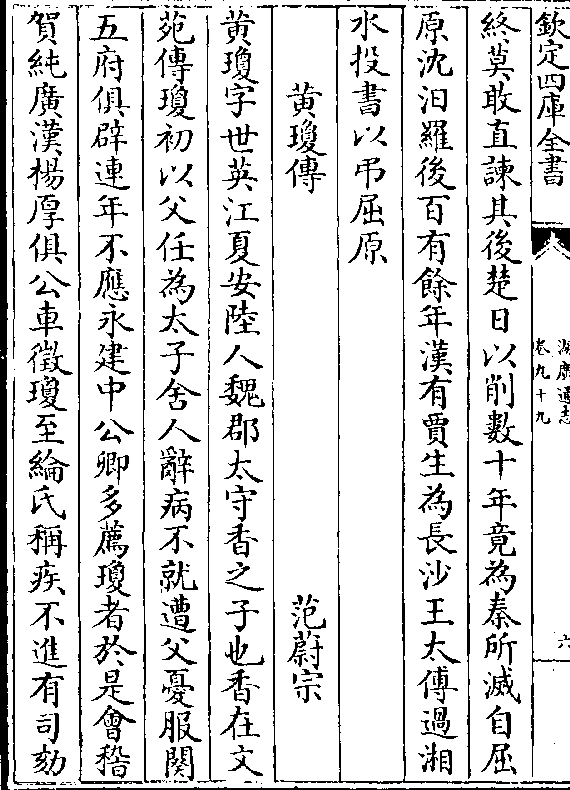 欽定四庫全書
湖廣通志
卷九十九
六
終莫敢直諫其後楚日以削數十年竟為秦所滅自屈
原沈汨羅後百有餘年漢有賈生為長沙王太傅過湘
水投書以弔屈原
黃瓊傳 范蔚宗
黃瓊字世英江夏安陸人魏郡太守香之子也香在文
苑傳瓊初以父任為太子舍人辭病不就遭父憂服闋
五府俱辟連年不應永建中公卿多薦瓊者於是會稽
賀純廣漢楊厚俱公車徵瓊至綸氏稱疾不進有司劾